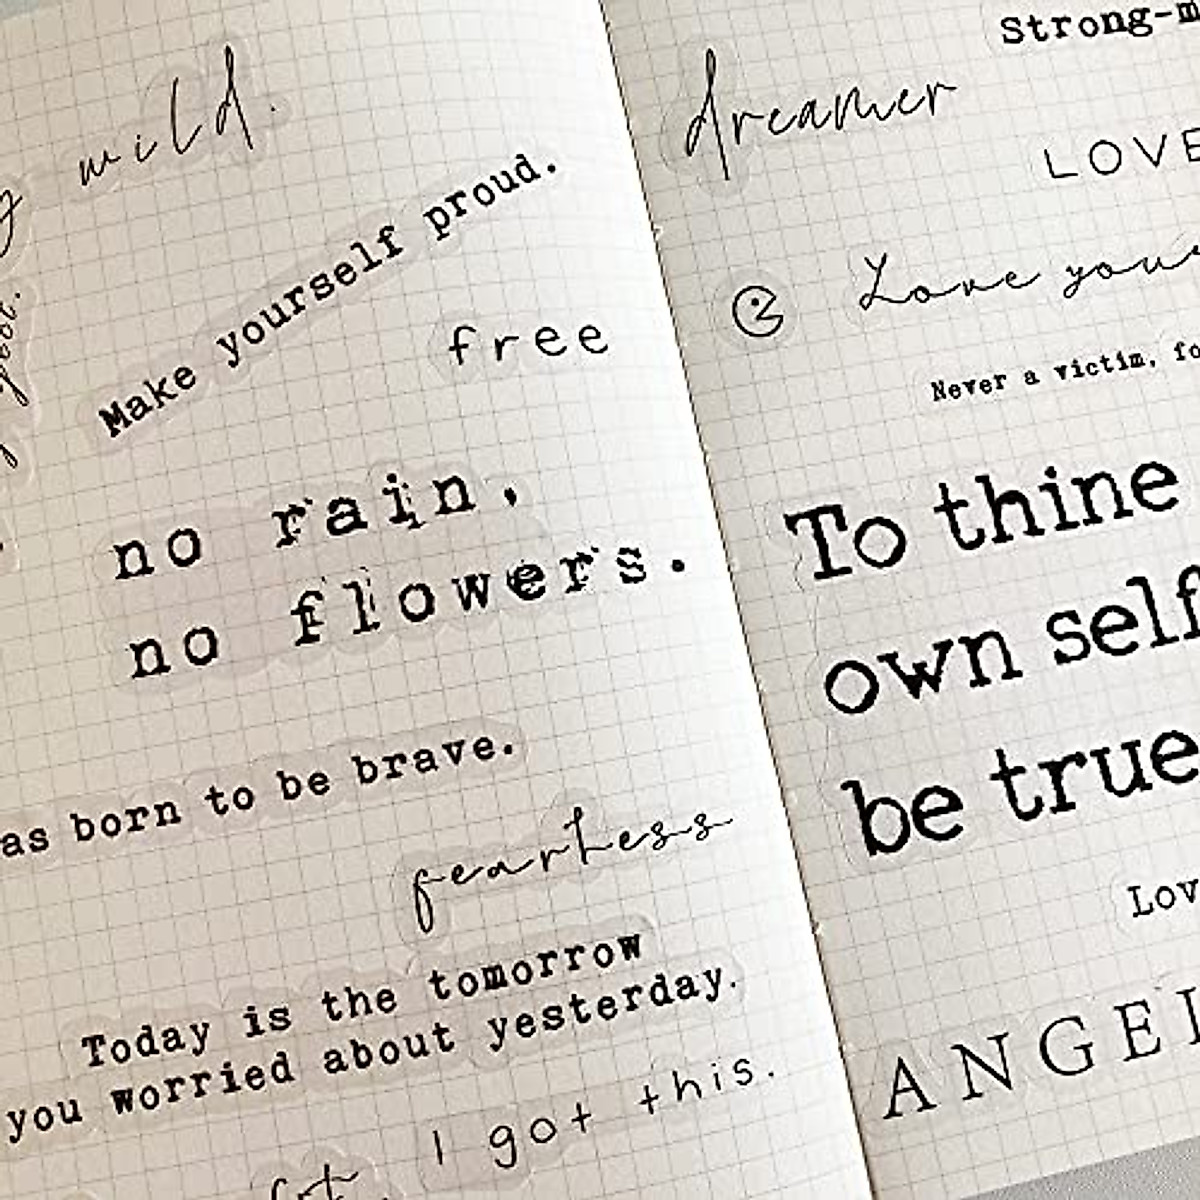 wild.
Make yourself proud.
free
no rain,
no flowers.
as born to be brave.
fearless
Today is the tomorrow
you worried about yesterday.
I got this.
Strong-m
dreamer
LOVE
Love your
Never a victim, fo
To thine
own self
be true
Lov
ANGEL